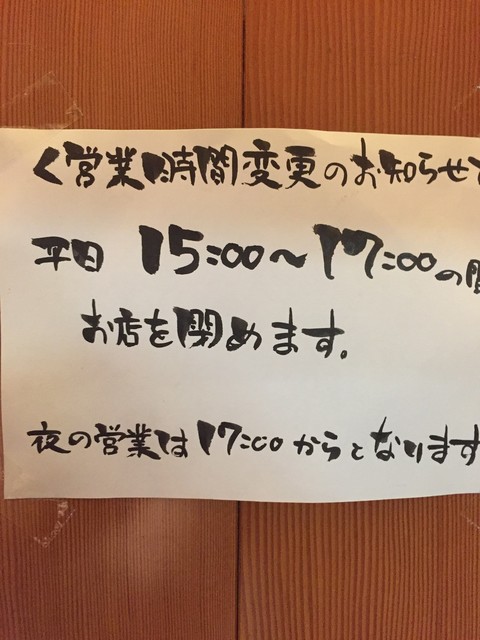 <営業時間変更のお知らせ>
平日 15:00～17:00の間
お店を閉めます。
夜の営業は17:00からとなります